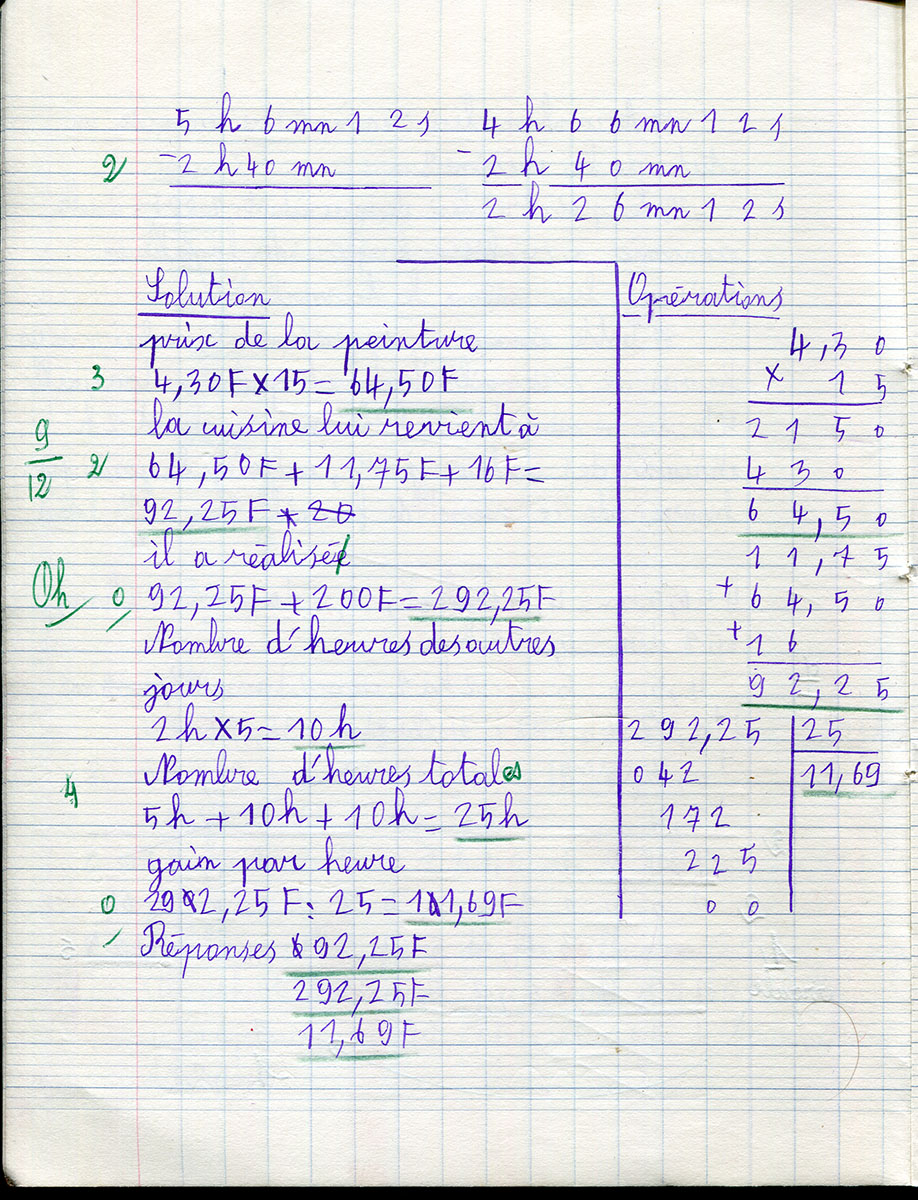 5 h 6 mn 1 2 s 4 h 6 6 mn 1 2 s
2 - 2 h 40 mn - 2 h 4 0 mn
2 h 2 6 mn 1 2 s
Solution
prix de la peinture
3 4,30F × 15 = 64,50F
la cuisine lui revient à
9/12 2 64,50F + 11,75F + 16F =
92,25F + 20
il a réalisé
Oh 0 92,25F + 200F = 292,25F
Nombre d'heures des autres
jours
2h × 5 = 10h
Nombre d'heures totales
4 5h + 10h + 10h = 25h
gain par heure
0 292,25F : 25 = 11,69F
Réponses 92,25F
292,25F
11,69F
Opérations
4,3 0
× 1 5
2 1 5 0
4 3 0
6 4,5 0
1 1,7 5
+ 6 4,5 0
+ 1 6
9 2,2 5
2 9 2,25 25
0 4 2 11,69
1 7 2
2 2 5
0 0